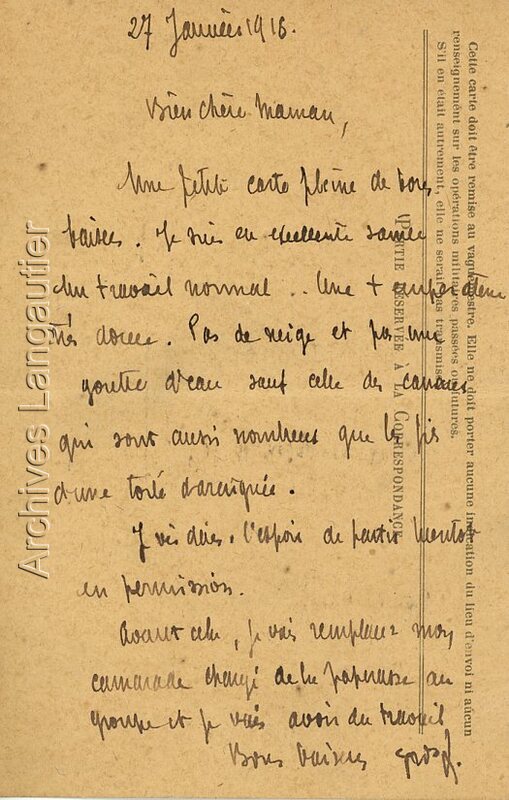 27 Janvier 1916.
Bien chère Maman,
Une petite carte pleine de bons
baisers. Je suis en excellente santé
du travail normal .. Une température
très douce. Pas de neige et pas une
goutte d'eau sauf celle des canaux
qui sont aussi nombreux que les fils
d'une toile d'araignée.
Je vis dans l'espoir de partir bientôt
en permission.
Avant cela, je vais remplacer mon
camarade chargé de la paperasse au
groupe et je vais avoir du travail
Bons baisers
Cette carte doit être remise au vaguemestre. Elle ne doit porter aucune indication du lieu d'envoi ni aucun
renseignement sur les opérations militaires passées ou futures.
S'il en était autrement, elle ne serait pas transmise.
(PARTIE RÉSERVÉE À LA CORRESPONDANCE
Archives Langautier